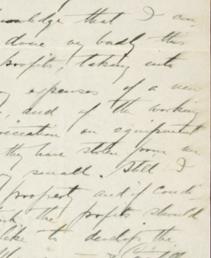 that I am
done very badly this
profits, taking into
expenses of a new
and of the working
on equipment
they have stolen from me
very small. Still I
property and if condi-
the profits should
like to develop the